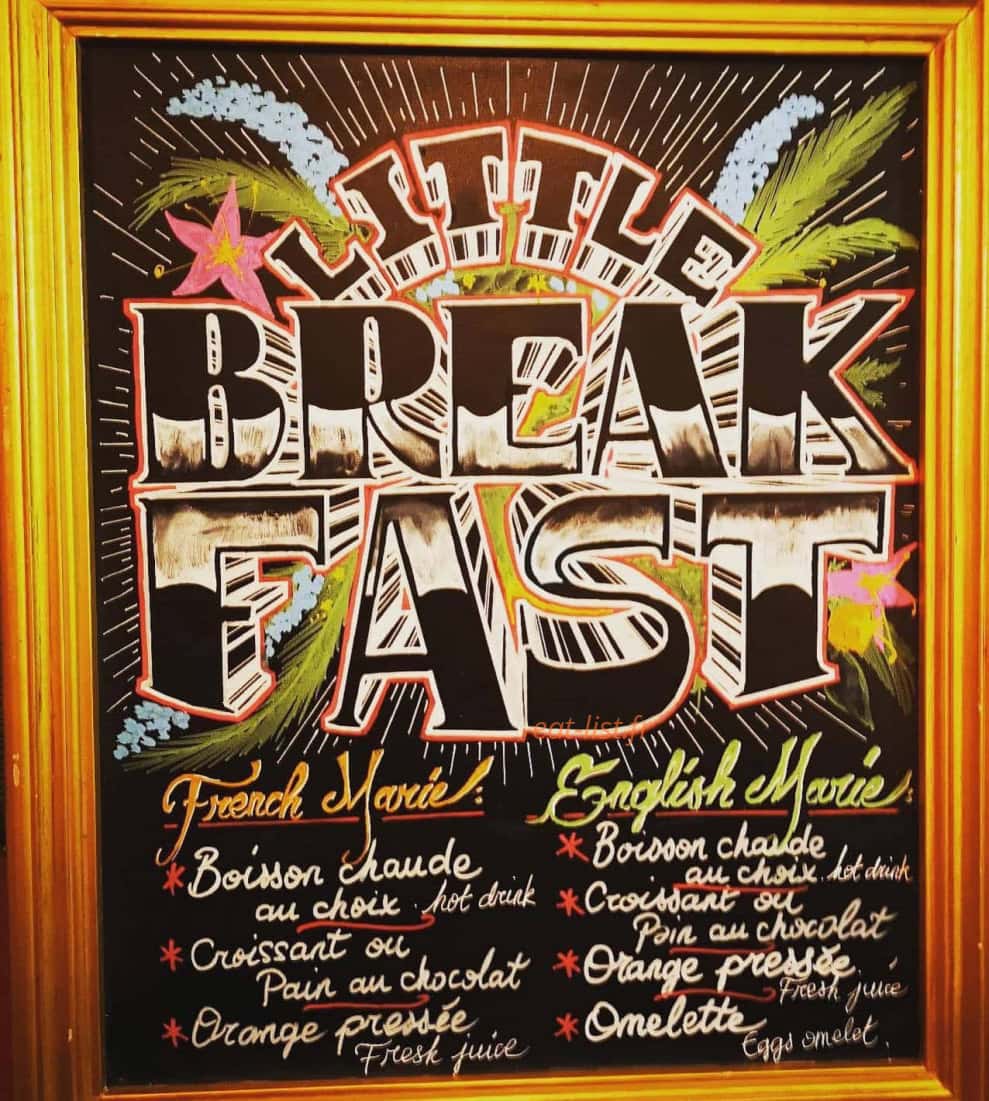 LITTLE
BREAK
FAST
eat-list.fr
French Marie:
* Boisson chaude
au choix. hot drink
* Croissant ou
Pain au chocolat
* Orange pressée
Fresh juice
English Marie:
* Boisson chaude
au choix. hot drink
* Croissant ou
Pain au chocolat
* Orange pressée
Fresh juice
* Omelette
Eggs omelet.